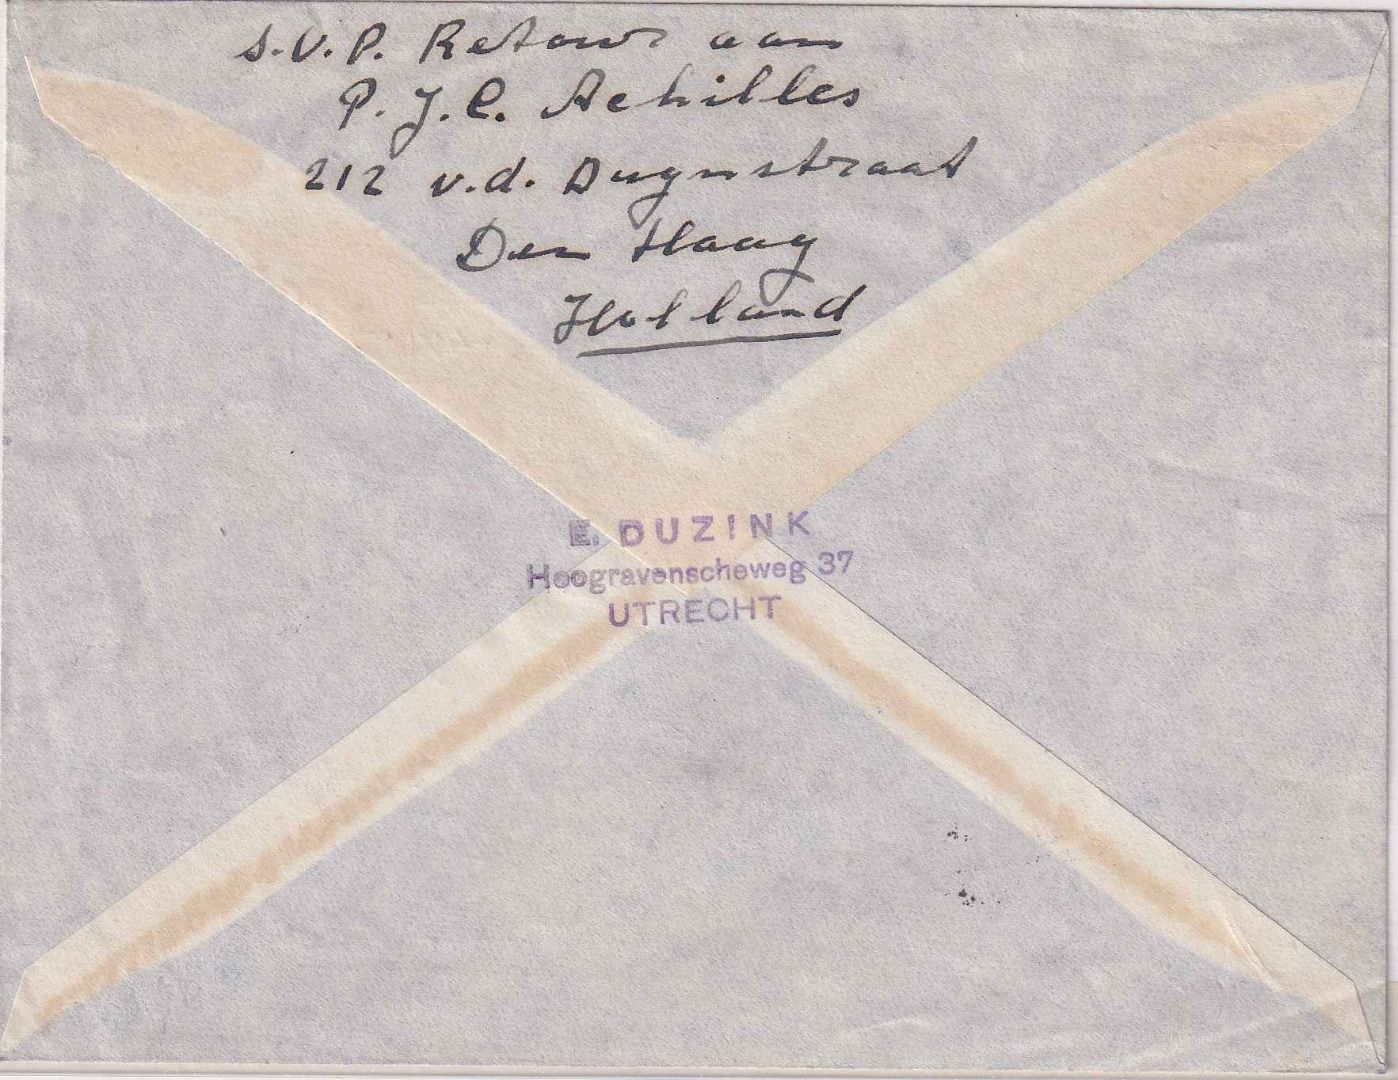 S.V.P. Retour aan
P. J. C. Achilles
212 v.d. Duynstraat
Den Haag
Holland
E. DUZINK
Hoogravenscheweg 37
UTRECHT